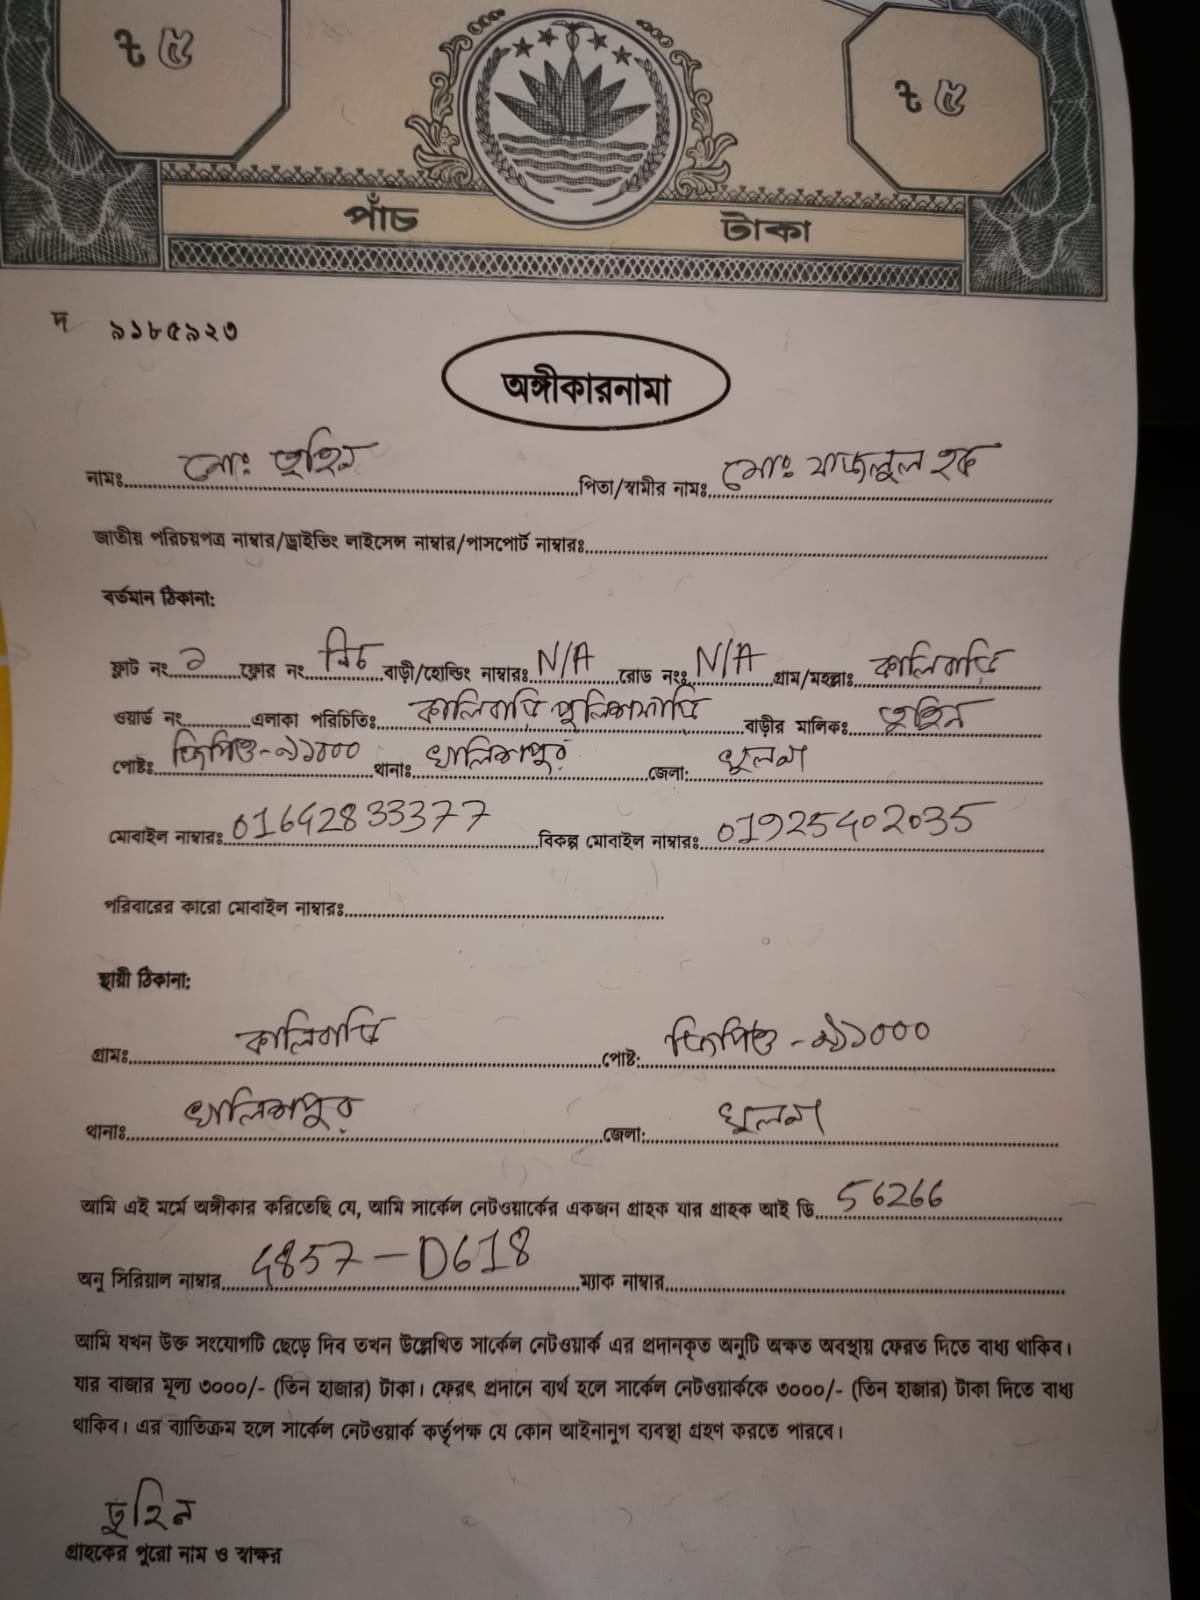 ৳ ৫ ৳ ৫
পাঁচ টাকা
দ ৯১৮৫৯২৩
অঙ্গীকারনামা
নামঃ মোঃ তুহিন পিতা/স্বামীর নামঃ মোঃ ফজলুল হক
জাতীয় পরিচয়পত্র নাম্বার/ড্রাইভিং লাইসেন্স নাম্বার/পাসপোর্ট নাম্বারঃ
বর্তমান ঠিকানা:
ফ্লাট নং ১ ফ্লোর নং নিচ বাড়ী/হোল্ডিং নাম্বারঃ N/A রোড নংঃ N/A গ্রাম/মহল্লাঃ কালিবাড়ি
ওয়ার্ড নং এলাকা পরিচিতিঃ কালিবাড়ি পুলিশফাড়ি বাড়ীর মালিকঃ তুহিন
পোষ্টঃ জিপিও-৯১০০০ থানাঃ খালিশপুর জেলা: খুলনা
মোবাইল নাম্বারঃ 01642833377 বিকল্প মোবাইল নাম্বারঃ 01925402035
পরিবারের কারো মোবাইল নাম্বারঃ
স্থায়ী ঠিকানা:
গ্রামঃ কালিবাড়ি পোষ্ট: জিপিও-৯১০০০
থানাঃ খালিশপুর জেলা: খুলনা
আমি এই মর্মে অঙ্গীকার করিতেছি যে, আমি সার্কেল নেটওয়ার্কের একজন গ্রাহক যার গ্রাহক আই ডি 56266
অনু সিরিয়াল নাম্বার 4857-D618 ম্যাক নাম্বার
আমি যখন উক্ত সংযোগটি ছেড়ে দিব তখন উল্লেখিত সার্কেল নেটওয়ার্ক এর প্রদানকৃত অনুটি অক্ষত অবস্থায় ফেরত দিতে বাধ্য থাকিব।
যার বাজার মূল্য ৩০০০/- (তিন হাজার) টাকা। ফেরৎ প্রদানে ব্যর্থ হলে সার্কেল নেটওয়ার্ককে ৩০০০/- (তিন হাজার) টাকা দিতে বাধ্য
থাকিব। এর ব্যাতিক্রম হলে সার্কেল নেটওয়ার্ক কর্তৃপক্ষ যে কোন আইনানুগ ব্যবস্থা গ্রহণ করতে পারবে।
তুহিন
গ্রাহকের পুরো নাম ও স্বাক্ষর